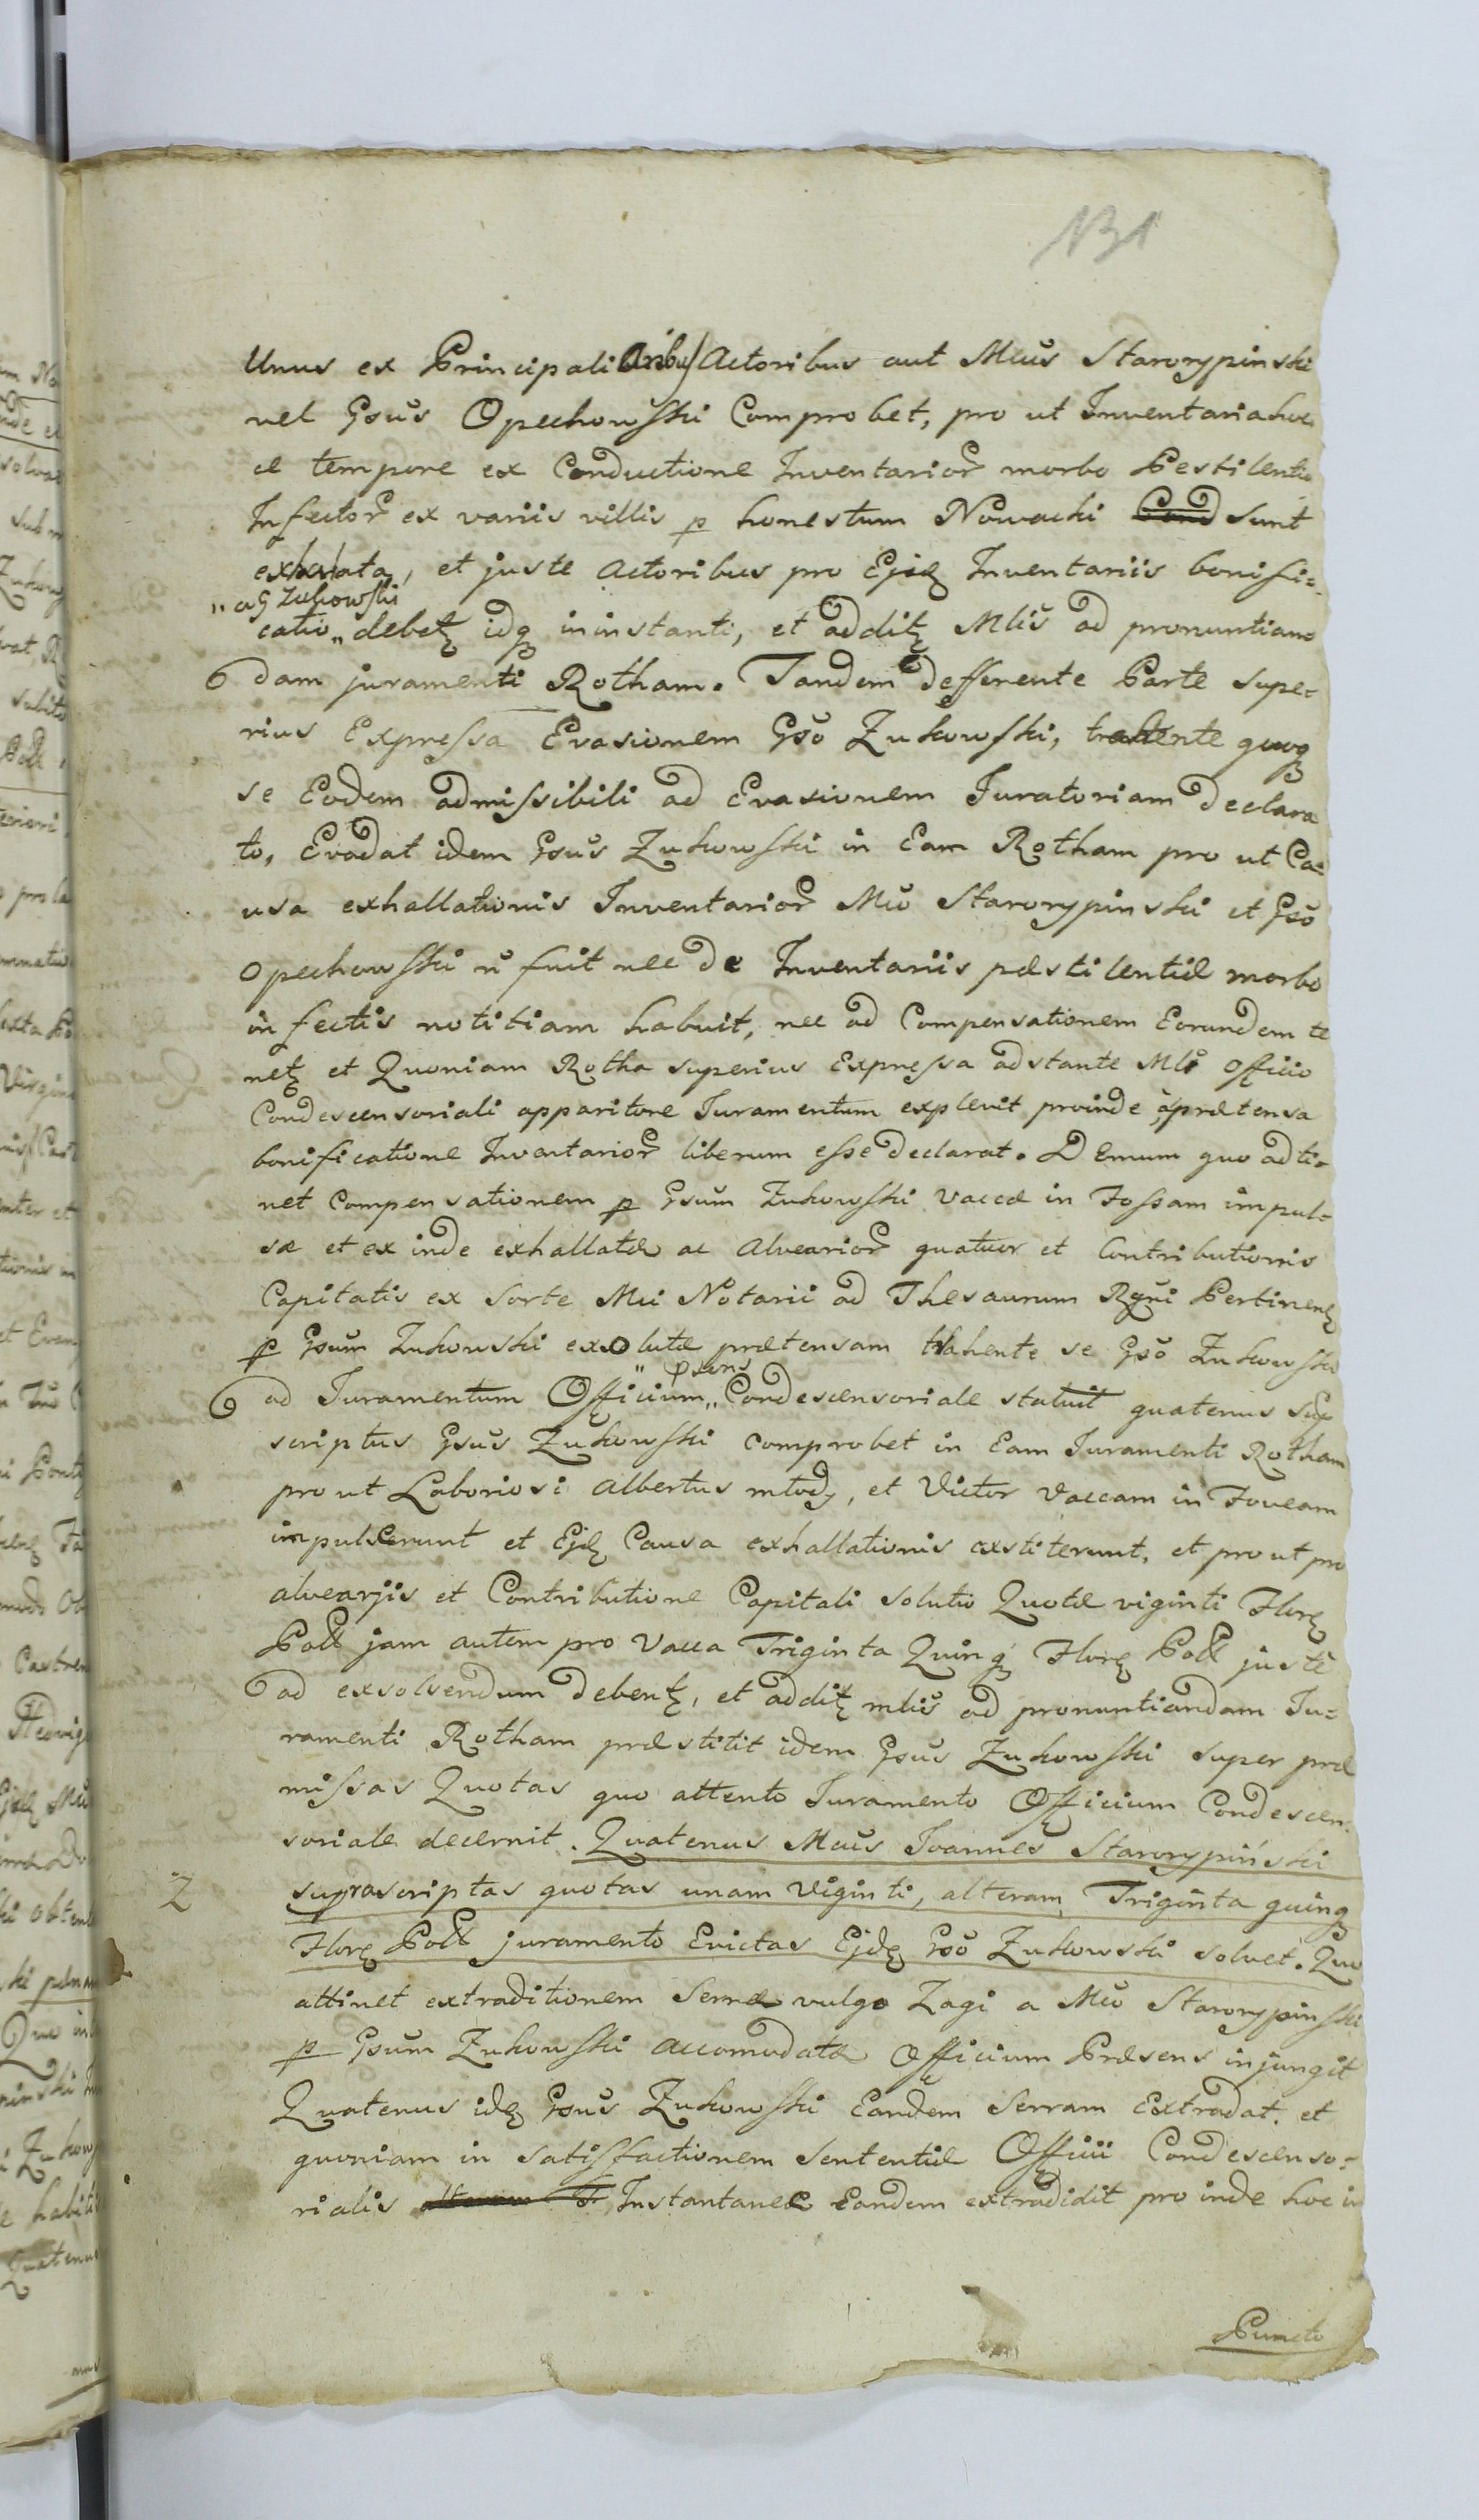 131
Unus ex Principalioribus Actoribus aut Mcus Starorypinski
vel Gsus Opechowski Comprobet, pro ut Inventaria hoc
ce tempore ex Conductione Inventarior morbo Pestilentiæ
Infector ex variis villis p honestum Nowacki Cond sunt
exhalata, et juste Actoribus pro Ejsd Inventariis bonifi=
„ a G Zukowski
catio „ debet idq in instanti, et addit Mlis ad pronuntian=
dam juramenti Rotham. Tandem defferente Parte supe=
rius Expressa Evasionem Gso Zukowski, trahente quoq
se Eodem admissibili ad Evasionem Juratoriam declara
to, Evadat idem Gsus Zukowski in Eam Rotham pro ut Ca=
usa exhallationis Inventarior Mco Starorypinski et Gso
Opechowski n fuit nec de Inventariis pæstilentiæ morbo
infectis notitiam habuit, nec ad Compensationem Eorundem te
net et Quoniam Rotha superius Expressa adstante Mli Officio
Condescensoriali apparitore Juramentum explevit proinde a prætensa
bonificatione Inventarior liberum esse declarat. Demum quo adti=
net Compensationem p Gsum Zukowski Vaccæ in Fossam impul=
sæ et ex inde exhallatæ ac Alvearior quatuor et Contributionis
Capitatis ex Sorte Mci Notarii ad Thesaurum Rgni Pertinen
p Gsum Zukowski exolutæ prætensam trahente se Gso Zukowski
„ Psens
ad Juramentum Officium „ Condescensoriale statuit quatenus sup
scriptus Gsus Zukowski comprobet in Eam Juramenti Rotham
pro ut Laboriosi Albertus mlody, et Victor Vaccam in Foveam
impulserunt et Ejsd Causa exhallationis exstiterunt, et pro ut pro
alvearjis et Contributione Capitali solutio Quotæ viginti Flor
Poll jam autem pro Vacca Triginta Quinq Flor Poll juste
ad exsolvendum debent, et addit mlis ad pronuntiandam Ju=
ramenti Rotham præstitit idem Gsus Zukowski super præ
missas Quotas quo attento Juramento Officium Condescen=
soriale decernit. Quatenus Mcus Joannes Starorypiński
2 suprascriptas quotas unam Viginti, alteram Triginta quinq
Flor Poll juramento Evictas Ejd Gso Zukowski solvet. Quo
attinet extraditionem Serræ vulgo Zagi a Mco Starorypinski
p Gsum Zukowski accomodatæ Officium Præsens injungit
Quatenus id Gsus Zukowski Eandem Serram Extradat. et
quoniam in satisfactionem Sententiæ Officii Condescenso=
rialis Instantanee Eandem extradidit pro inde hoc in
Puncto